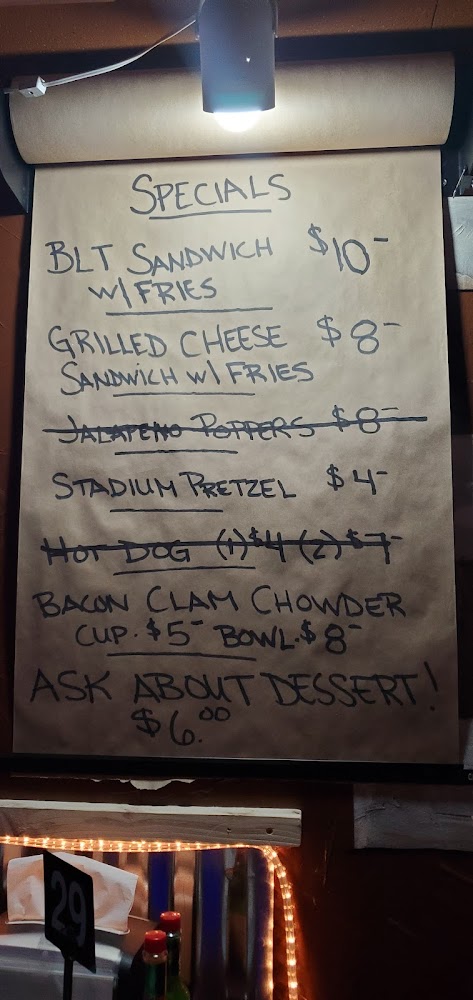 SPECIALS
BLT SANDWICH $10-
W/ FRIES
GRILLED CHEESE $8-
SANDWICH W/ FRIES
JALAPENO POPPERS $8-
STADIUM PRETZEL $4-
HOT DOG (1) $4 (2) $7-
BACON CLAM CHOWDER
CUP. $5- BOWL. $8-
ASK ABOUT DESSERT!
$6.00
29